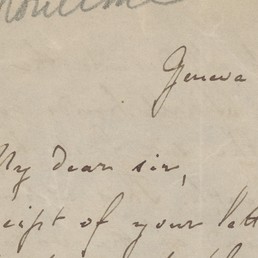 Geneva
My dear sir,
ceipt of your lett